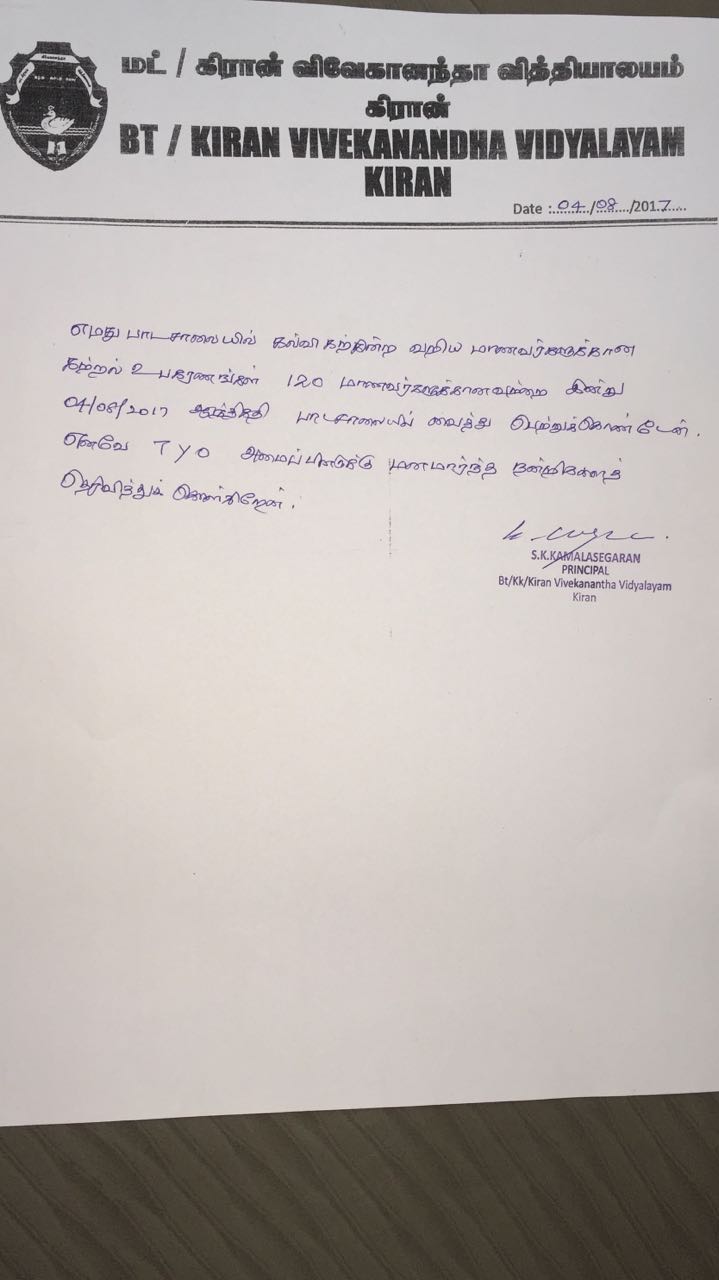 மட் / கிரான் விவேகானந்தா வித்தியாலயம்
கிரான்
BT / KIRAN VIVEKANANDHA VIDYALAYAM
KIRAN
Date :..04../08.../2017.....
எமது பாடசாலையில் கல்வி கற்கின்ற வறிய மாணவர்களுக்கான
கற்றல் உபகரணங்கள் 120 மாணவர்களுக்கானவற்றை இன்று
04/08/2017 ஆந்திகதி பாடசாலையில் வைத்து பெற்றுக்கொண்டேன்.
எனவே TYO அமைப்பினருக்கு மனமார்ந்த நன்றிகளைத்
தெரிவித்துக் கொள்கிறேன்.
S.K.KAMALASEGARAN
PRINCIPAL
Bt/Kk/Kiran Vivekanantha Vidyalayam
Kiran